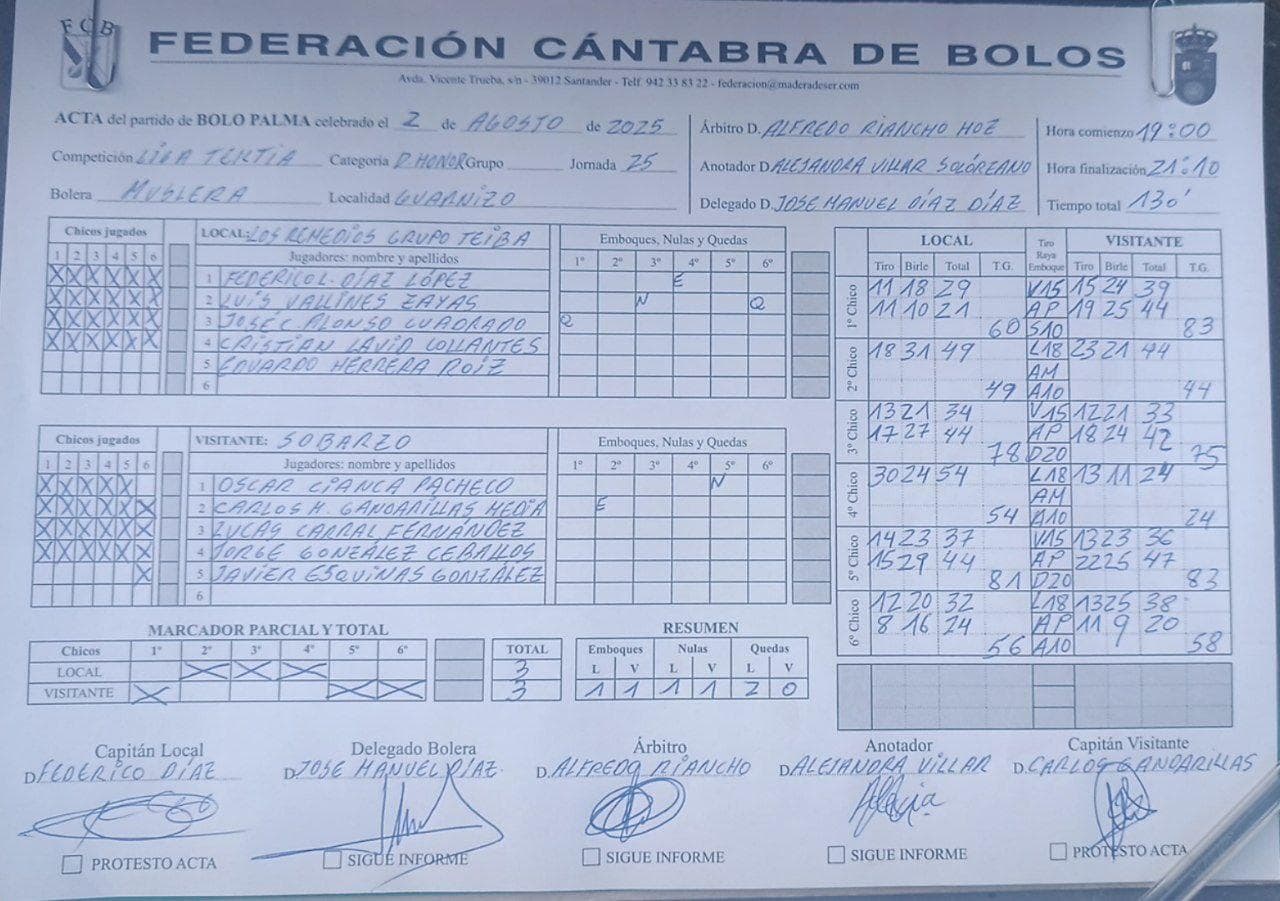 FCB
FEDERACIÓN CÁNTABRA DE BOLOS
Avda. Vicente Trueba, s/n - 39012 Santander - Telf. 942 33 83 22 - federacion@maderadeser.com
ACTA del partido de BOLO PALMA celebrado el 2 de AGOSTO de 2025
Competición LIGA TERTIA Categoría D.HONOR Grupo Jornada 25
Bolera MUSLERA Localidad GUARNIZO
Árbitro D. ALFREDO RIANCHO HOZ
Anotador D. ALEJANDRA VILLAR SOLÓRZANO
Delegado D. JOSE MANUEL DÍAZ DÍAZ
Hora comienzo 19:00
Hora finalización 21:10
Tiempo total 130'
Chicos jugados
1 2 3 4 5 6
X X X X X X
X X X X X X
X X X X X X
X X X X X X
LOCAL: LOS REMEDIOS GRUPO TEIBA
Jugadores: nombre y apellidos
1 FEDERICO DÍAZ LÓPEZ
2 LUIS VALLINES ZAYAS
3 JOSÉ C. ALONSO CUADRADO
4 CRISTIAN LAVID COLLANTES
5 EDUARDO HERRERA RUIZ
6
Emboques, Nulas y Quedas
1º 2º 3º 4º 5º 6º
E
N Q
Q
Chicos jugados
1 2 3 4 5 6
X X X X X
X X X X X X
X X X X X X
X X X X X X
X
VISITANTE: SOBARZO
Jugadores: nombre y apellidos
1 OSCAR CIANCA PACHECO
2 CARLOS M. GANDARILLAS MEDIA
3 LUCAS CARRAL FERNÁNDEZ
4 JORGE GONZÁLEZ CEBALLOS
5 JAVIER ESQUINAS GONZÁLEZ
6
Emboques, Nulas y Quedas
1º 2º 3º 4º 5º 6º
N
E
LOCAL Tiro Raya Emboque VISITANTE
Tiro Birle Total T.G. Tiro Birle Total T.G.
1º Chico
11 18 29 V15 15 24 39
11 10 21 AP 19 25 44
60 S10 83
2º Chico
18 31 49 L18 23 21 44
AM
49 A10 44
3º Chico
13 21 34 V15 12 21 33
17 27 44 AP 18 24 42
78 D20 75
4º Chico
30 24 54 L18 13 11 24
AM
54 A10 24
5º Chico
14 23 37 V15 13 23 36
15 29 44 AP 22 25 47
81 D20 83
6º Chico
12 20 32 L18 13 25 38
8 16 24 AP 11 9 20
56 A10 58
MARCADOR PARCIAL Y TOTAL
Chicos 1º 2º 3º 4º 5º 6º TOTAL
LOCAL X X X 3
VISITANTE X X X 3
RESUMEN
Emboques Nulas Quedas
L V L V L V
1 1 1 1 2 0
Capitán Local
D. FEDERICO DÍAZ
PROTESTO ACTA
Delegado Bolera
D. JOSE MANUEL DÍAZ
SIGUE INFORME
Árbitro
D. ALFREDO RIANCHO
SIGUE INFORME
Anotador
D. ALEJANDRA VILLAR
SIGUE INFORME
Capitán Visitante
D. CARLOS GANDARILLAS
PROTESTO ACTA